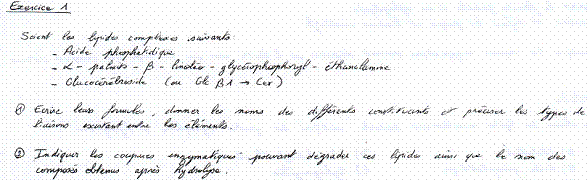 Exercice 1
Soient les lipides complexes suivants
- Acide phosphatidique
- α - palmito - β - linoléo - glycérophosphoryl - éthanolamine
- Glucocérébroside (ou Glc β1 → Cer)
① Ecrire leurs formules, donner les noms des différents constituants et préciser les types de
liaisons existant entre les éléments.
② Indiquer les coupures enzymatiques pouvant dégrader ces lipides ainsi que le nom des
composés obtenus après hydrolyse.